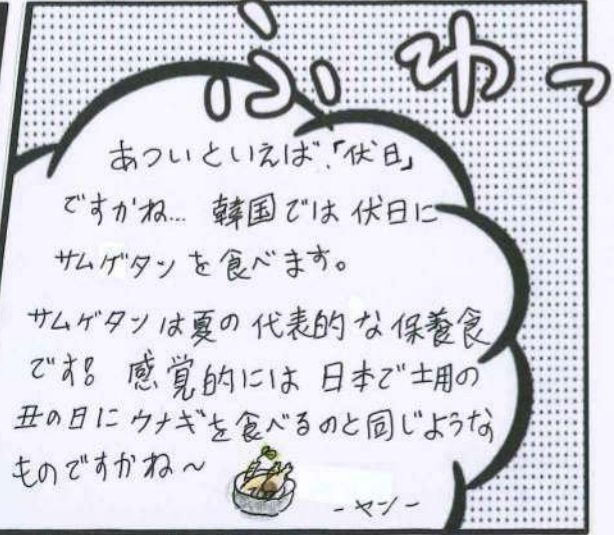 ふわっ
あついといえば、「伏日」
ですかね… 韓国では伏日に
サムゲタンを食べます。
サムゲタンは夏の代表的な保養食
です。感覚的には日本で土用の
丑の日にウナギを食べるのと同じような
ものですかね～
-ヤン-